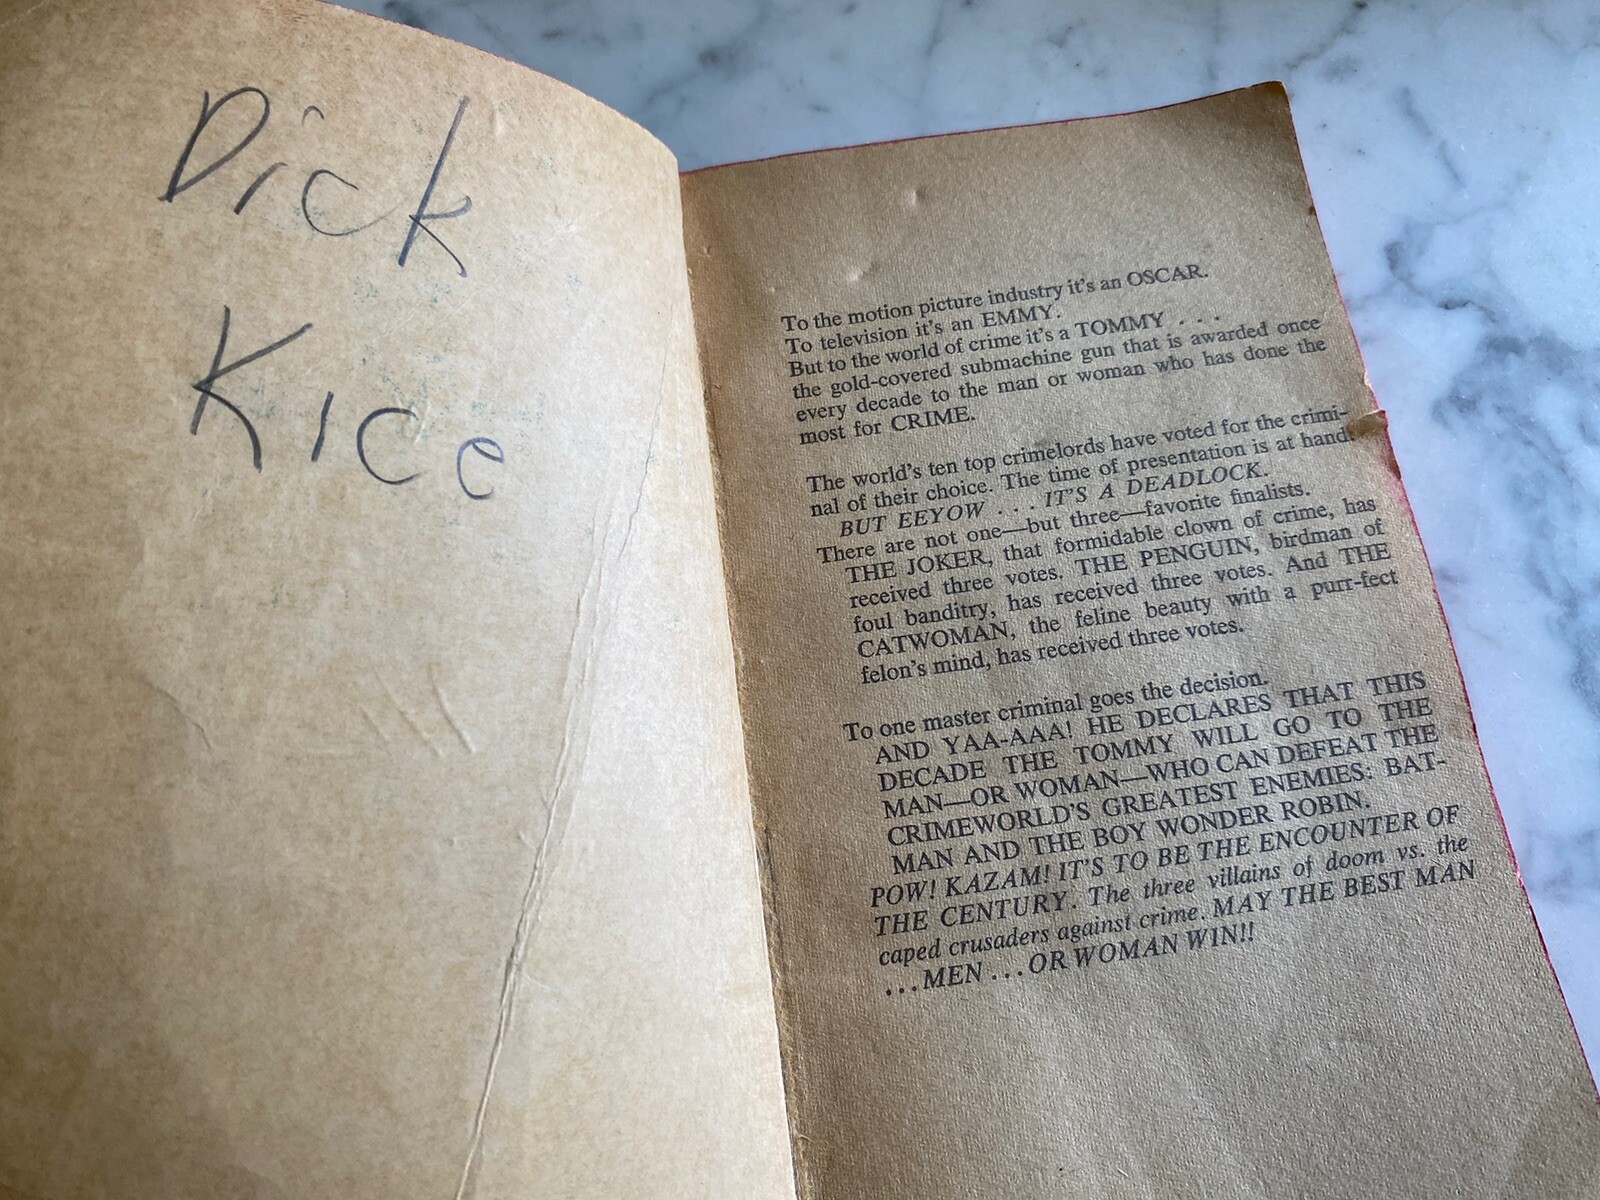 Dick
Kice
To the motion picture industry it's an OSCAR.
To television it's an EMMY.
But to the world of crime it's a TOMMY . . .
the gold-covered submachine gun that is awarded once
every decade to the man or woman who has done the
most for CRIME.
The world's ten top crimelords have voted for the crimi-
nal of their choice. The time of presentation is at hand.
BUT EEYOW . . . IT'S A DEADLOCK.
There are not one—but three—favorite finalists.
THE JOKER, that formidable clown of crime, has
received three votes. THE PENGUIN, birdman of
foul banditry, has received three votes. And THE
CATWOMAN, the feline beauty with a purr-fect
felon's mind, has received three votes.
To one master criminal goes the decision.
AND YAA-AAA! HE DECLARES THAT THIS
DECADE THE TOMMY WILL GO TO THE
MAN—OR WOMAN—WHO CAN DEFEAT THE
CRIMEWORLD'S GREATEST ENEMIES: BAT-
MAN AND THE BOY WONDER ROBIN.
POW! KAZAM! IT'S TO BE THE ENCOUNTER OF
THE CENTURY. The three villains of doom vs. the
caped crusaders against crime. MAY THE BEST MAN
. . . MEN . . . OR WOMAN WIN!!